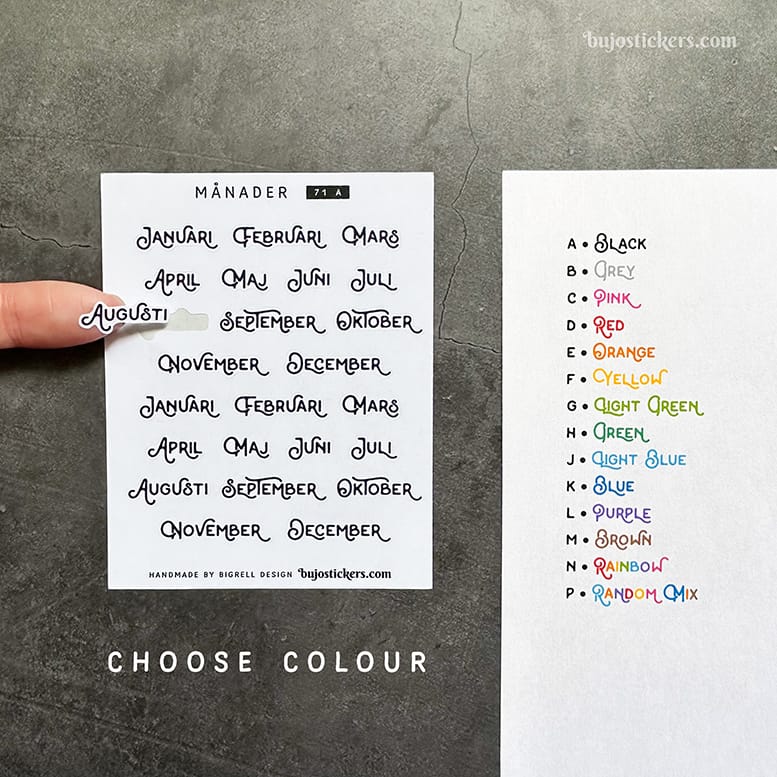 bujostickers.com
MÅNADER 71 A
JANUARI FEBRUARI MARS
APRIL MAJ JUNI JULI
AUGUSTI SEPTEMBER OKTOBER
NOVEMBER DECEMBER
JANUARI FEBRUARI MARS
APRIL MAJ JUNI JULI
AUGUSTI SEPTEMBER OKTOBER
NOVEMBER DECEMBER
HANDMADE BY BIGRELL DESIGN bujostickers.com
CHOOSE COLOUR
A • BLACK
B • GREY
C • PINK
D • RED
E • ORANGE
F • YELLOW
G • LIGHT GREEN
H • GREEN
J • LIGHT BLUE
K • BLUE
L • PURPLE
M • BROWN
N • RAINBOW
P • RANDOM MIX